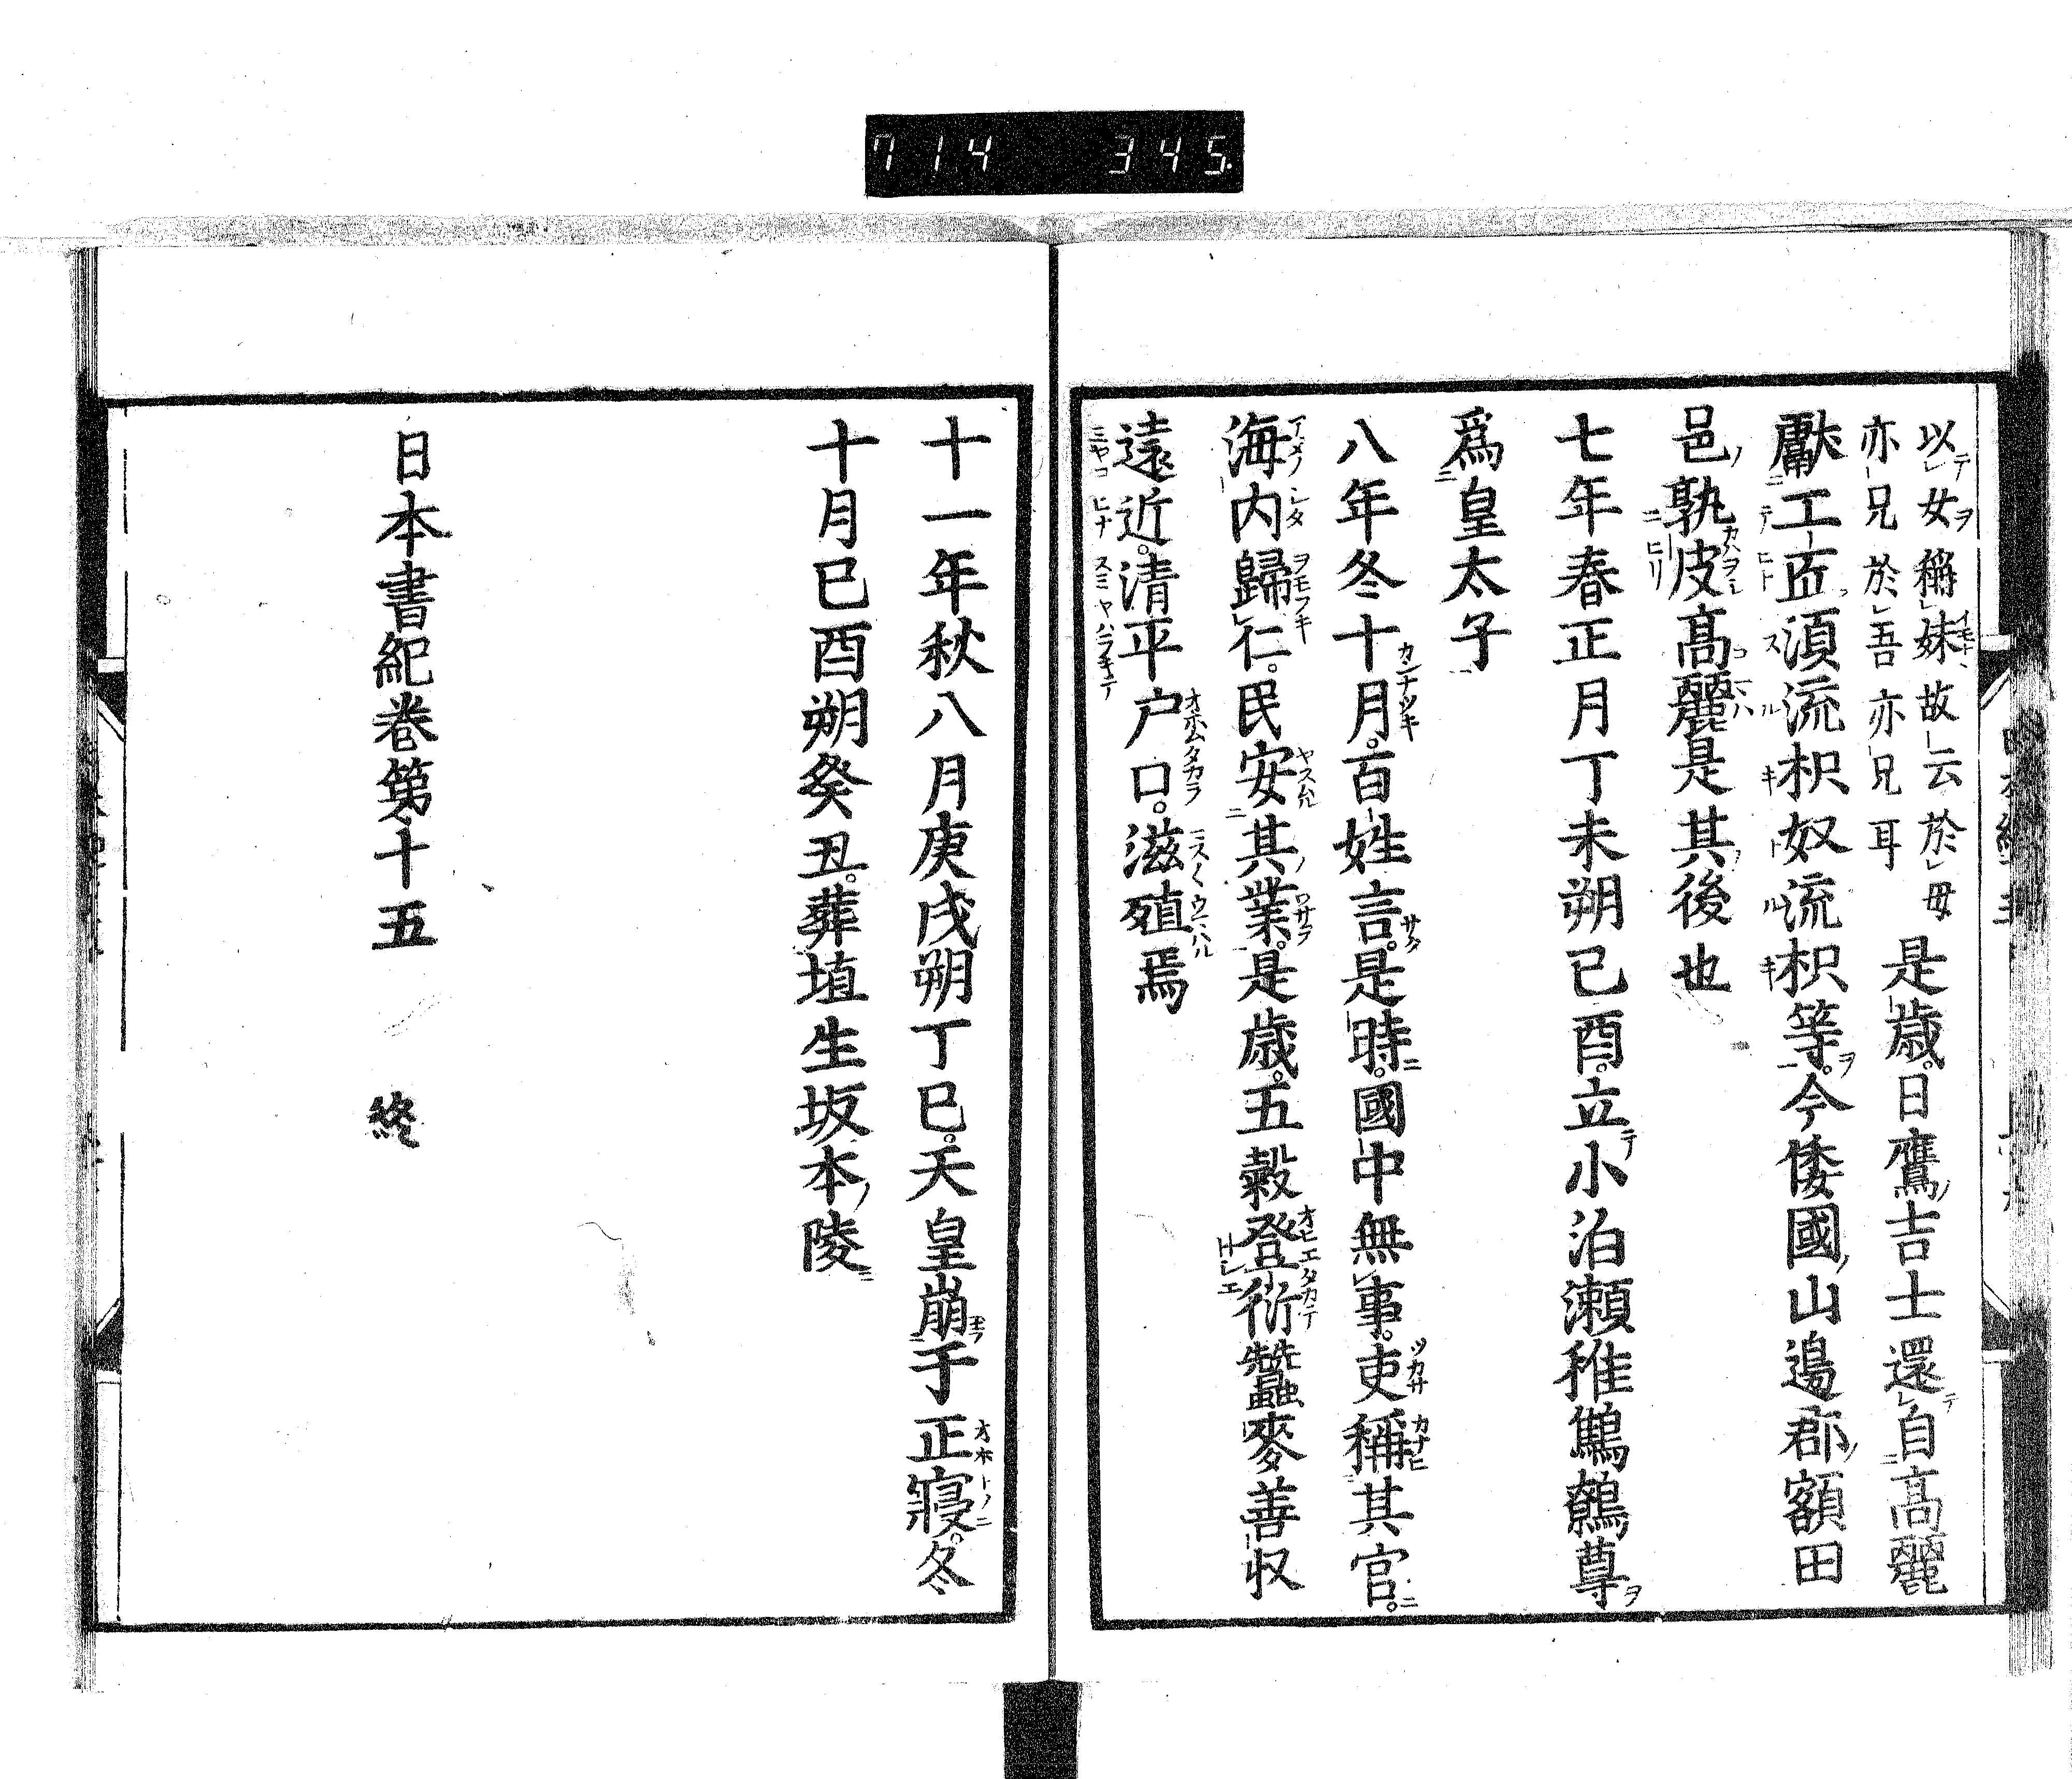 714 345
以女稱妹故云於母
亦兄於吾亦兄耳
是歳。日鷹吉士還自高麗
獻工匠須流枳奴流枳等。今倭國山邉郡額田
邑孰皮高麗是其後也
七年春正月丁未朔己酉。立小泊瀬稚鷦鷯尊
爲皇太子
八年冬十月。百姓言。是時。國中無事。吏稱其官。
海内歸仁。民安其業。是歳。五穀登衍蠶麥善収
遠近。清平户口。滋殖焉
十一年秋八月庚戌朔丁巳。天皇崩于正寢。冬
十月己酉朔癸丑。葬埴生坂本陵
日本書紀巻第十五 終